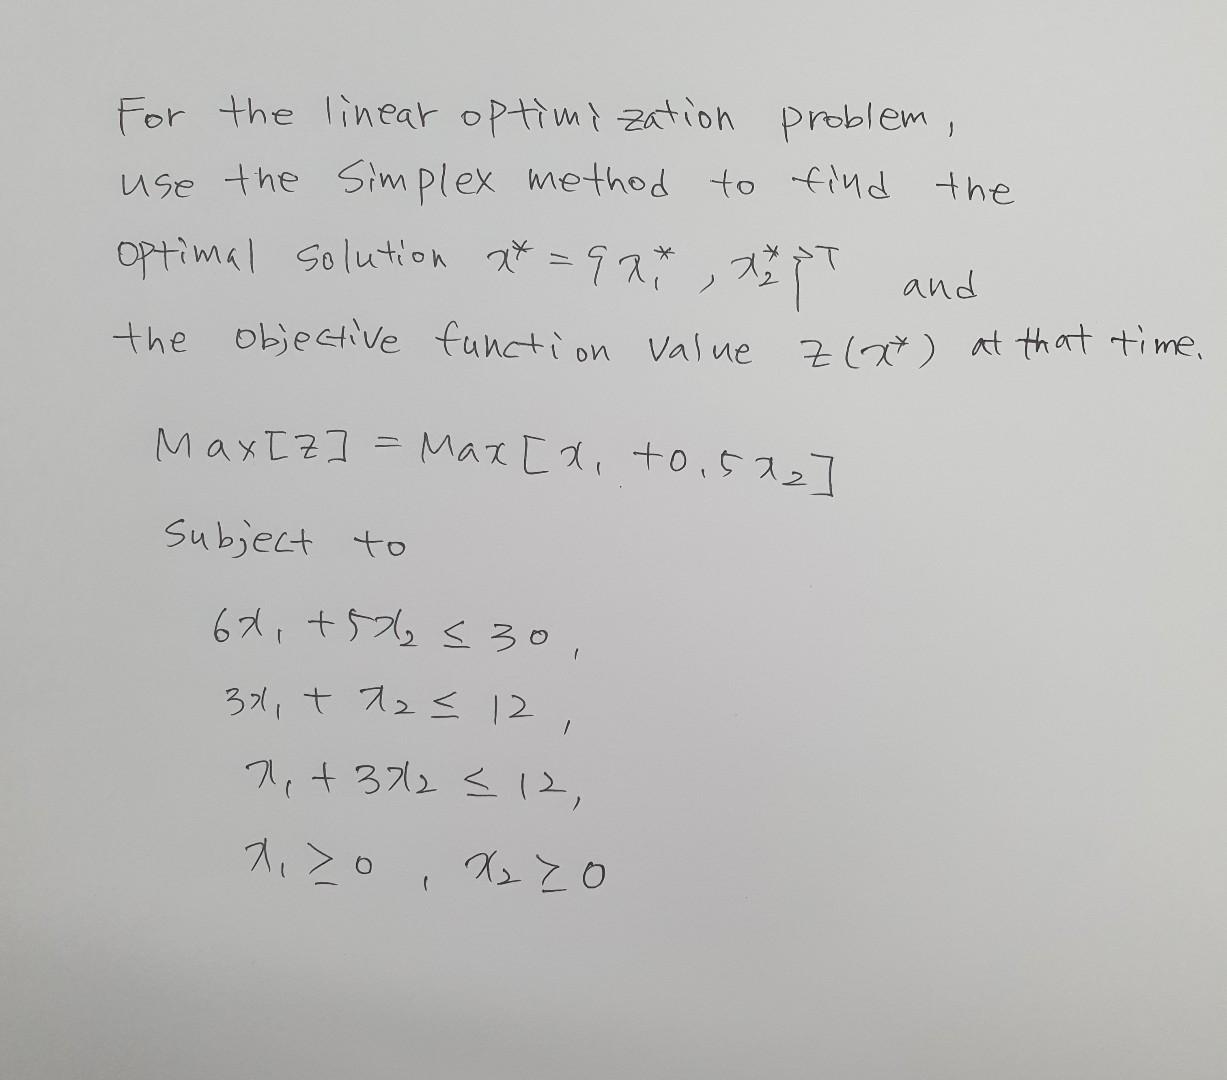 For the linear optimization problem,
use the simplex method to find the
optimal solution x* = {x₁*, x₂*}ᵀ and
the objective function value z(x*) at that time.
Max[z] = Max[x₁ + 0.5x₂]
Subject to
6x₁ + 5x₂ ≤ 30,
3x₁ + x₂ ≤ 12,
x₁ + 3x₂ ≤ 12,
x₁ ≥ 0, x₂ ≥ 0